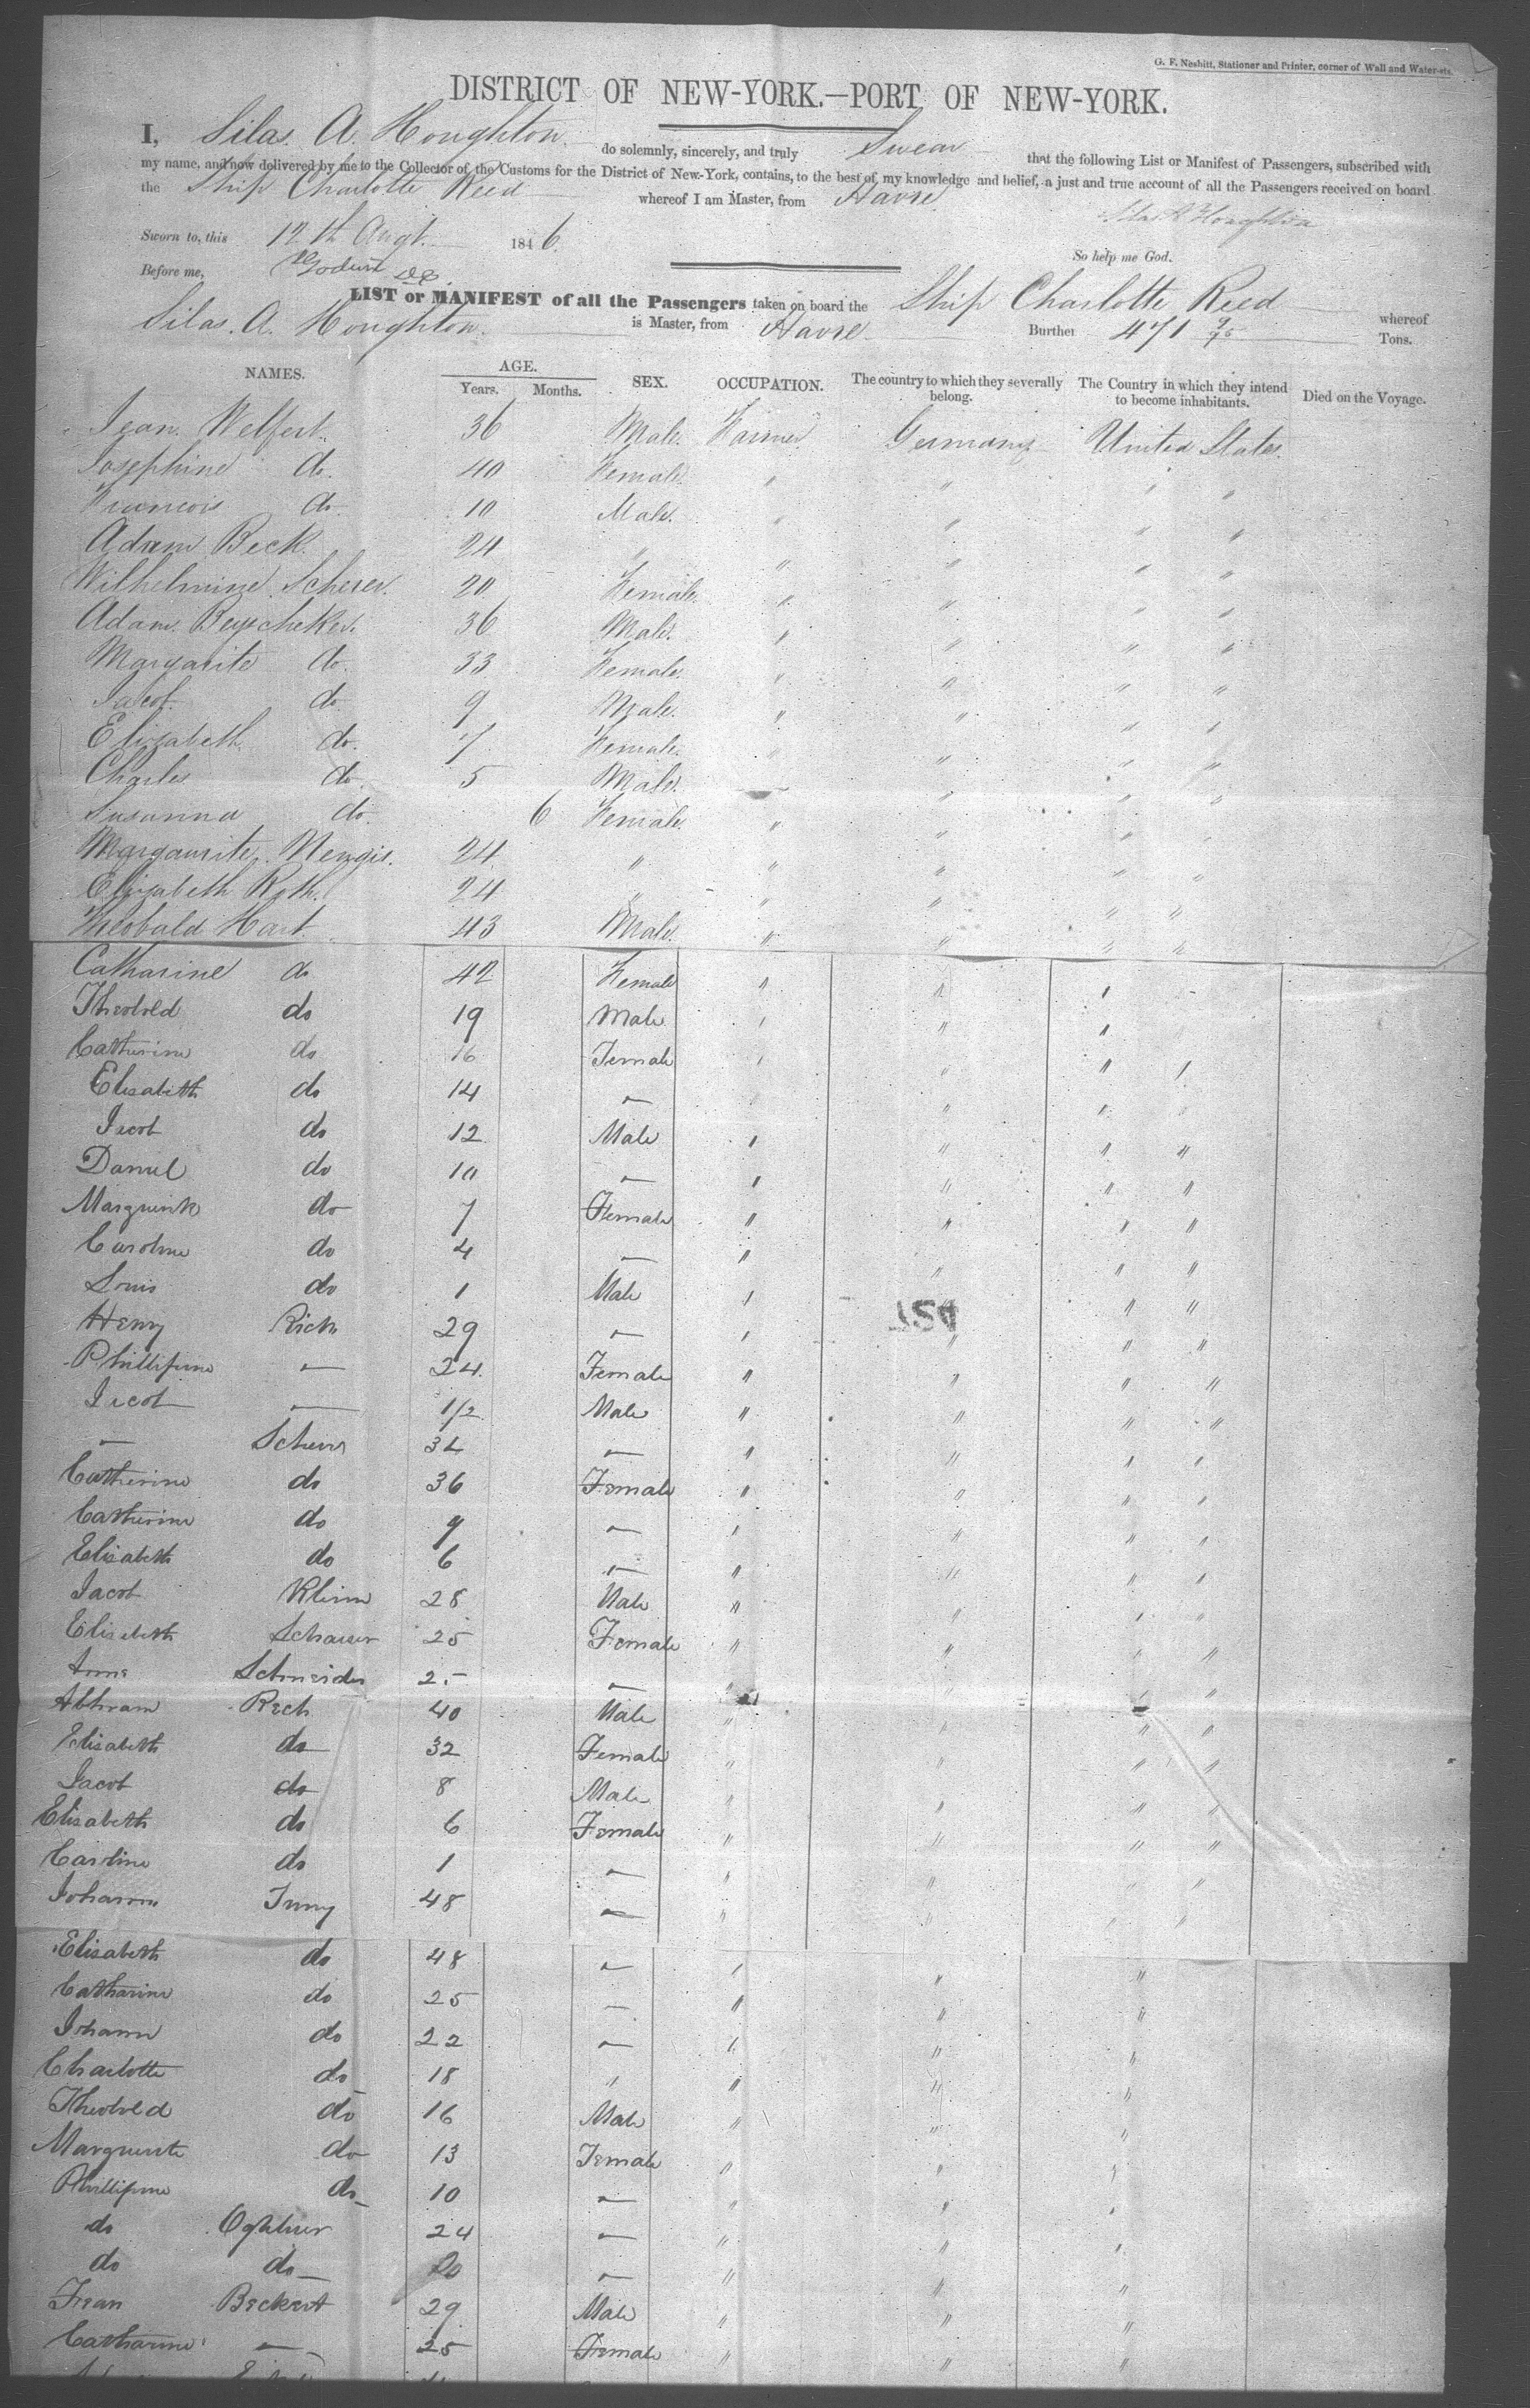 G. F. Nesbitt, Stationer and Printer, corner of Wall and Water-sts.
DISTRICT OF NEW-YORK.—PORT OF NEW-YORK.
I, Silas. A. Houghton. do solemnly, sincerely, and truly Swear that the following List or Manifest of Passengers, subscribed with
my name, and now delivered by me to the Collector of the Customs for the District of New-York, contains, to the best of my knowledge and belief, a just and true account of all the Passengers received on board
the Ship Charlotte Reed whereof I am Master, from Havre
Silas A Houghton
Sworn to, this 12th Augt. 1846.
So help me God.
Before me,
LIST or MANIFEST of all the Passengers taken on board the Ship Charlotte Reed whereof
Silas. A. Houghton. is Master, from Havre. Burthen 471 9/95 Tons.
NAMES. AGE. Years. Months. SEX. OCCUPATION. The country to which they severally belong. The Country in which they intend to become inhabitants. Died on the Voyage.
Jean. Welfert. 36 Male. Farmer Germany United States.
Josephine do. 40 Female. " " " "
Francois do. 10 Male. " " " "
Adam Beck. 24 " " " " "
Wilhelmine. Scherer. 20 Female. " " " "
Adam. 36 Male. " " " "
Margarite do. 33 Female. " " " "
Jacob. do 9 Male. " " " "
Elizabeth. do. 7 Female. " " " "
Charles do. 5 Male. " " " "
Susanna do. 6 Female. " " " "
Margaurite. 24 " " " " "
Elizabeth Roth. 24 " " " " "
Theobald Hart. 43 Male. " " " "
Catharine do 42 Female " " "
Theobold do 19 Male " " "
Catherine do 16 Female " " " "
Elisabeth do 14 — " "
Jacob do 12 Male " " " "
Daniel do 10 — " " " "
Marguerite do 7 Female " " " "
Caroline do 4 — " " " "
Louis do 1 Male " " "
Henry Rich 29 — " " " "
Phillipine — 24. Female " " " "
Jacob — 1/2 Male " " " "
— 34 — " " " "
Catherine do 36 Female " " " "
Catherine do 9 — " " " "
Elisabeth do 6 — " " " "
Jacob 28 Male " " " "
Elisabeth 25 Female " " " "
Anna Schneider — " " " "
Abhram Rech 40 Male " " "
Elisabeth do 32 Female " " "
Jacob do 8 Male " " " "
Elisabeth do 6 Female " " " "
Caroline do 1 — " " " "
Johann 48 — " " " "
Elisabeth do 48 — " " "
Catharine do 25 — " " "
Johann do 22 — " " "
Charlotte do 18 " " " "
Theobold do 16 Male " " "
Marguerite do 13 Female " " "
Phillipine do 10 — " " "
do 24 — " " "
do do 20 — " " "
Jean Beckert 29 Male " " "
Catharine — 25 Female " " "